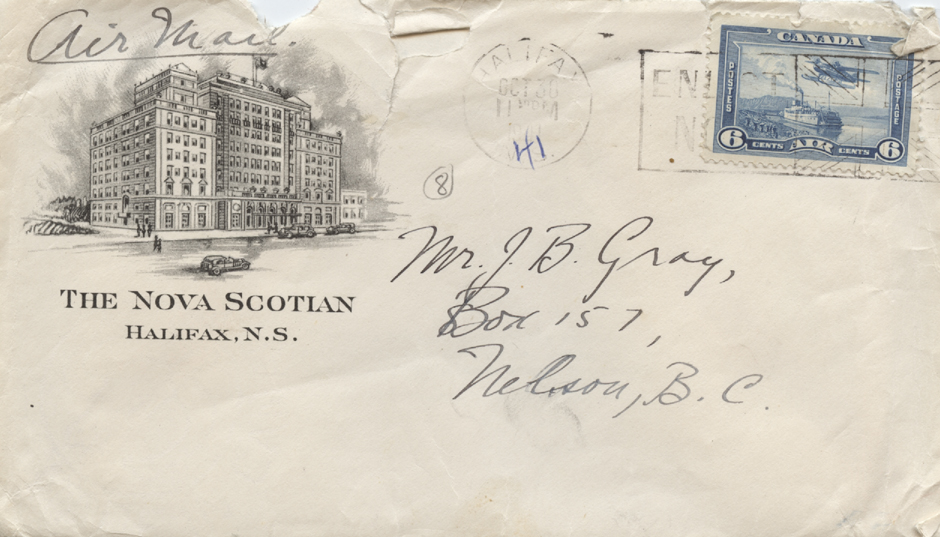 Air Mail.
HALIFAX
OCT 30
11 PM
41
CANADA
POSTES
POSTAGE
6 CENTS AIR CENTS 6
8
Mr. J. B. Gray,
Box 157,
Nelson, B.C.
THE NOVA SCOTIAN
HALIFAX, N.S.